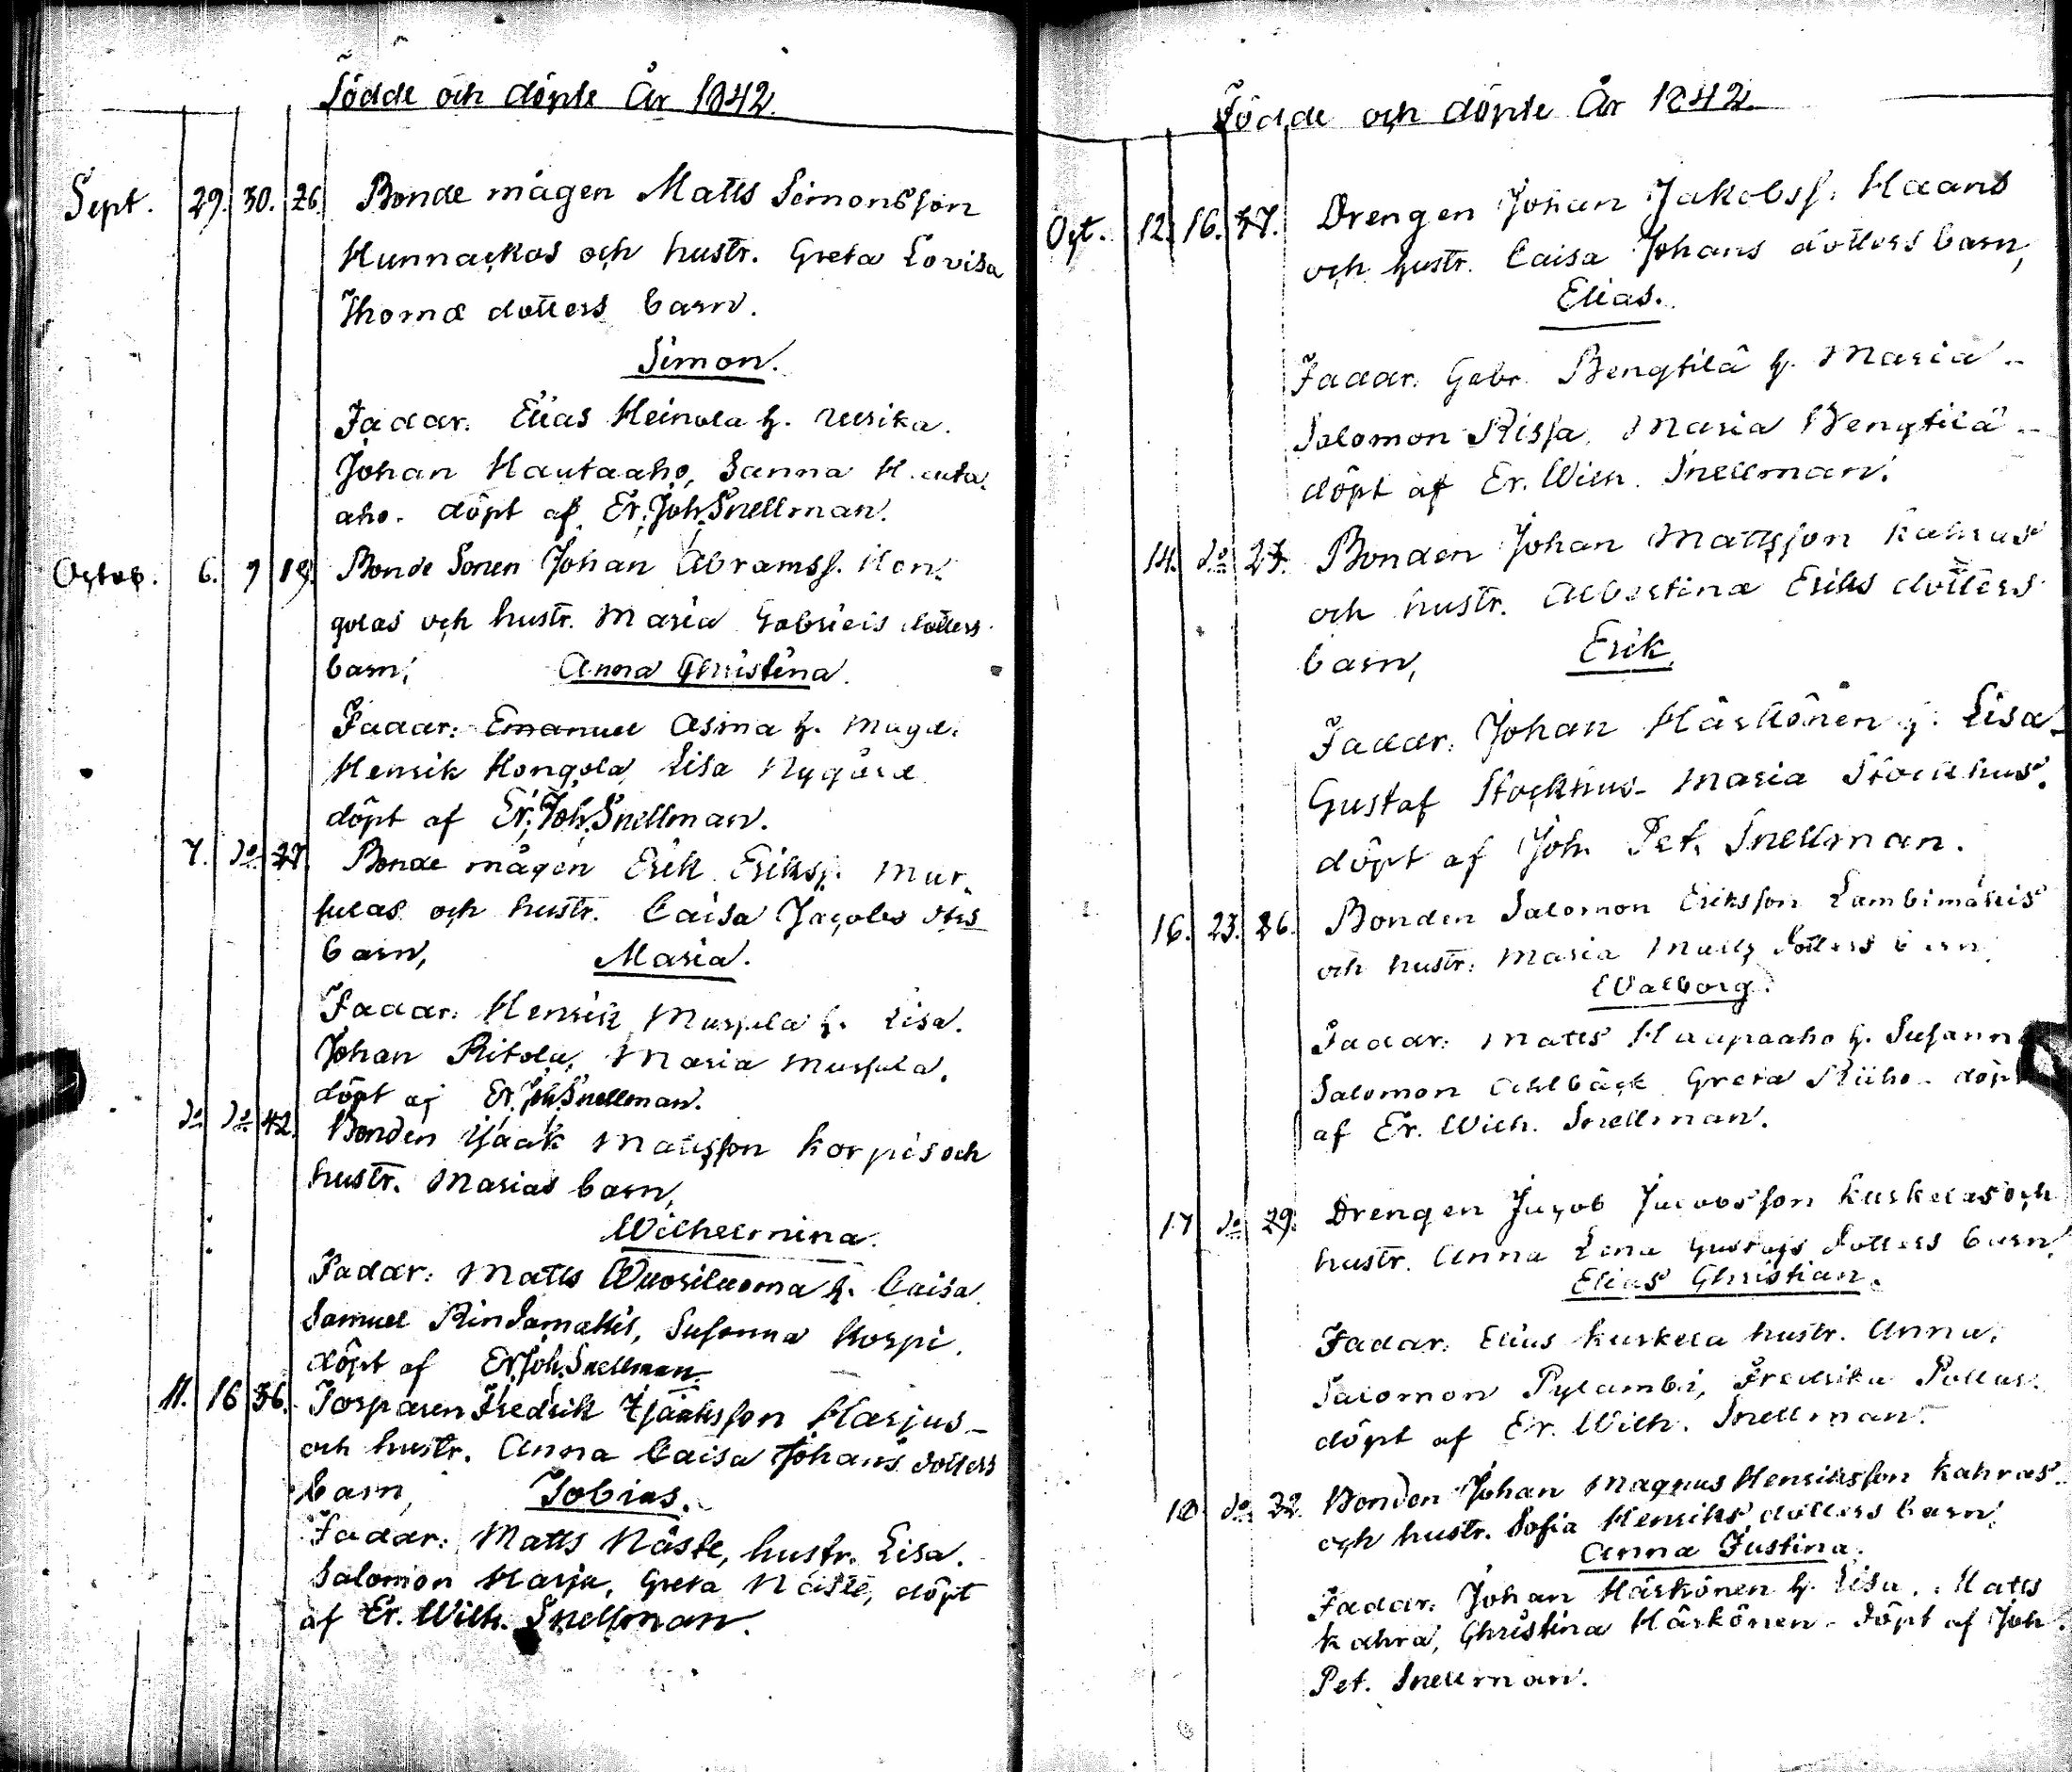 Födde och döpte År 1842.
Sept. 29. 30. 26. Bonde mågen Matts Simonsson
Hunnackos och hustr. Greta Lovisa
Thomæ dotters barn.
Simon.
Faddr. Elias Heinola h. Ulrika.
Johan Hautaaho, Sanna Hauta
aho. döpt af Er. Joh. Snellman.
Octob. 6. 9 19. Bonde Sonen Johan Abramss. Hon-
golas och hustr. Maria Gabriels dotters
barn, Anna Christina.
Faddr: Emanuel Asma h. Magd.
Henrik Hongola, Lisa Nygård
döpt af Er. Joh. Snellman.
7. do 27. Bonde mågen Erik Eriks. Mur-
sulas och hustr. Caisa Jacobs dtrs
barn, Maria.
Faddr: Henrik Mursula h. Lisa.
Johan Ritola, Maria Mursula.
döpt af Er. Joh. Snellman.
do do 42. Bonden Isaak Matsson Korpis och
hustr. Marias barn,
Wilhelmina.
Faddr: Matts Wuoriluoma h. Caisa.
Samuel Rindamäkis, Susanna Korpi.
döpt af Er. Joh. Snellman
11. 16 36. Torparen Fredrik Isaaksson Harjus
och hustr. Anna Caisa Johans dotters
barn, Tobias.
Faddr: Matts Näste, hustr. Lisa.
Salomon Harju, Greta Näste, döpt
af Er. Wilh. Snellman.
Födde och döpte År 1842.
Oct. 12. 16. 27. Drengen Johan Jakobss. Haans
och hustr. Caisa Johans dotters barn,
Elias.
Faddr: Gabr. Bengtilä h. Maria
Salomon Rissa, Maria Bengtilä
döpt af Er. Wilh. Snellman.
14. do 23. Bonden Johan Mattsson Kahras
och hustr. Albertina Eriks dotters
barn, Erik.
Faddr: Johan Härkönen h. Lisa
Gustaf Stockhus Maria Stockhus.
döpt af Joh. Pet. Snellman.
16. 23. 26. Bonden Salomon Eriksson Lambimäkis
och hustr: Maria Matts dotters barn.
Walborg.
Faddr: Matts Haapaaho h. Susann
Salomon Ahlbäck Greta Riiho döpt
af Er. Wilh. Snellman.
17 do 29. Drengen Jacob Jacobsson Kuskelas och
hustr. Anna Lena Gustafs dotters barn,
Elias Christian.
Faddr: Elias Kuskela hustr. Anna.
Salomon Pylambi, Fredrika Pollas.
döpt af Er. Wilh. Snellman.
18. do 32. Bonden Johan Magnus Henriksson Kahras
och hustr. Sofia Henriks dotters barn,
Anna Justina.
Faddr. Johan Härkönen h. Lisa. Matts
Kahra, Christina Härkönen. Döpt af Joh.
Pet. Snellman.